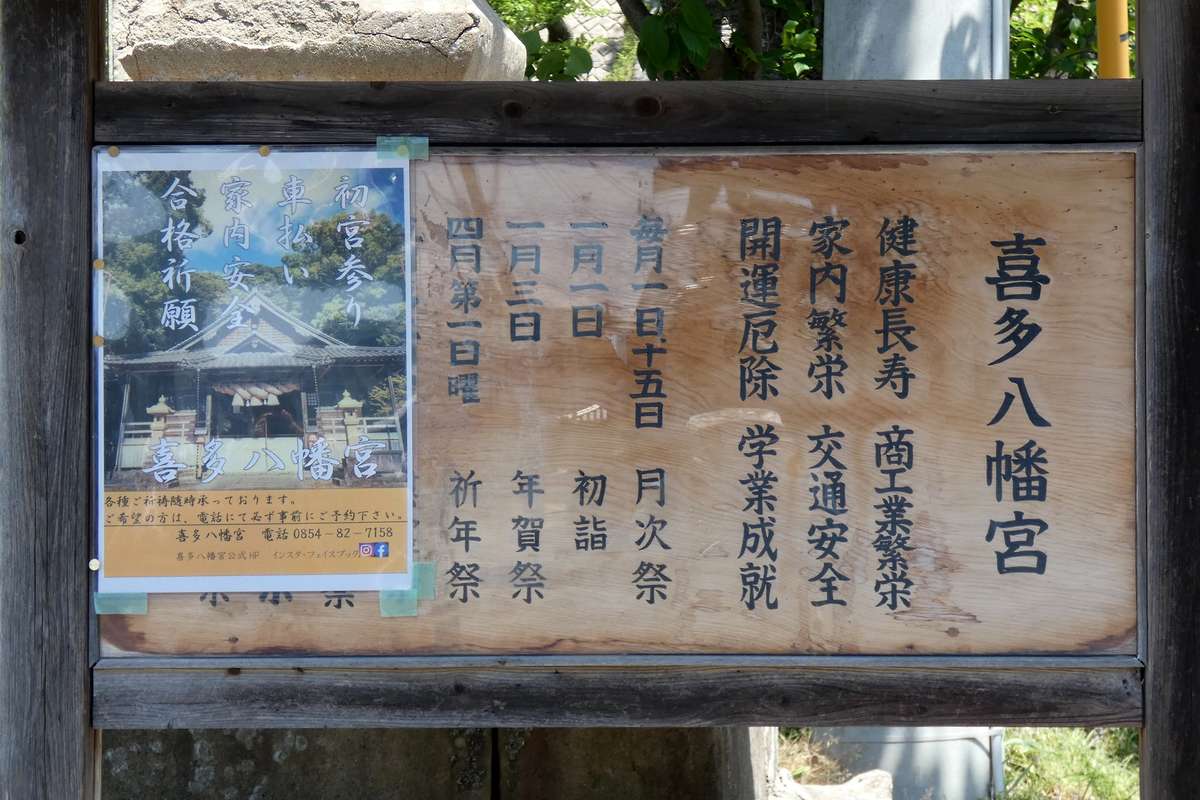 喜多八幡宮
健康長寿 商工業繁栄
家内繁栄 交通安全
開運厄除 学業成就
毎月一日、十五日 月次祭
一月一日 初詣
一月三日 年賀祭
四月第一日曜 祈年祭
祭
初宮参り
車払い
家内安全
合格祈願
喜多八幡宮
各種ご祈祷随時承っております。
ご希望の方は、電話にて必ず事前にご予約下さい。
喜多八幡宮 電話0854-82-7158
喜多八幡宮公式HP インスタ・フェイスブック